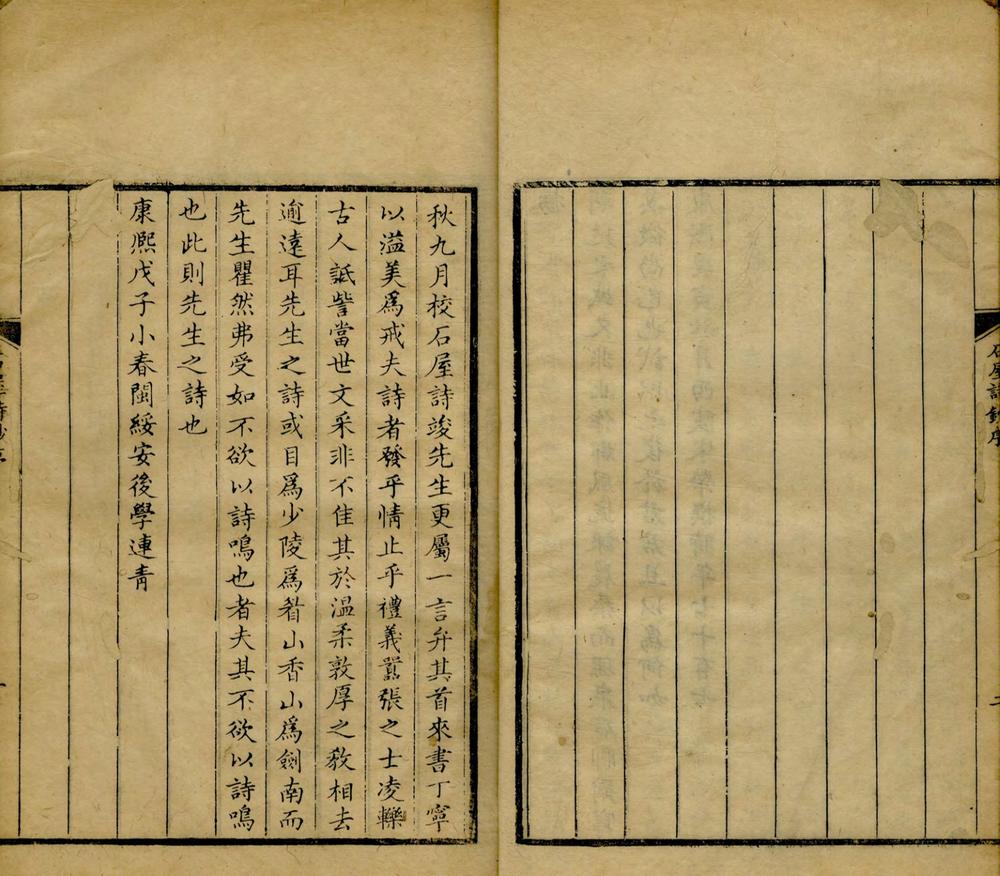 石屋詩鈔序
二
秋九月校石屋詩竣先生更屬一言弁其首來書丁寧
以溢美爲戒夫詩者發乎情止乎禮義囂張之士凌轢
古人詆訾當世文采非不佳其於温柔敦厚之敎相去
逾遠耳先生之詩或目爲少陵爲眉山香山爲劍南而
先生瞿然弗受如不欲以詩鳴也者夫其不欲以詩鳴
也此則先生之詩也
康熙戊子小春閩綏安後學連青